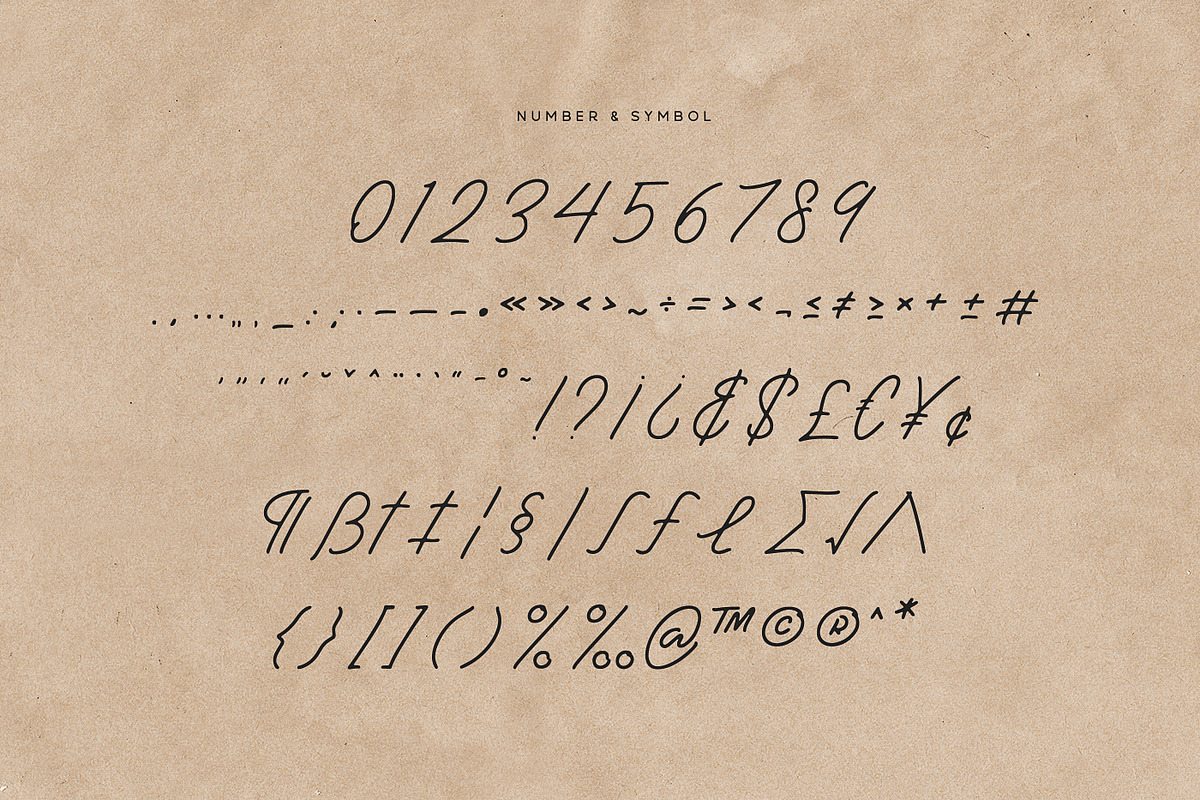 NUMBER & SYMBOL
0123456789
. , … „ ‚ _ : ; · · — — – • « » < > ~ ÷ = > < ¬ ≤ ≠ ≥ × + ± #
’ ” ‘ “ ´ ˘ ˇ ˆ ¨ ˙ ` ˝ ¯ ° ˜ ! ? ¡ ¿ & $ £ € ¥ ¢
¶ ß † ‡ ¦ § | ∫ ƒ ℓ ∑ √ / \
{ } [ ] ( ) % ‰ @ ™ © ® ^ *